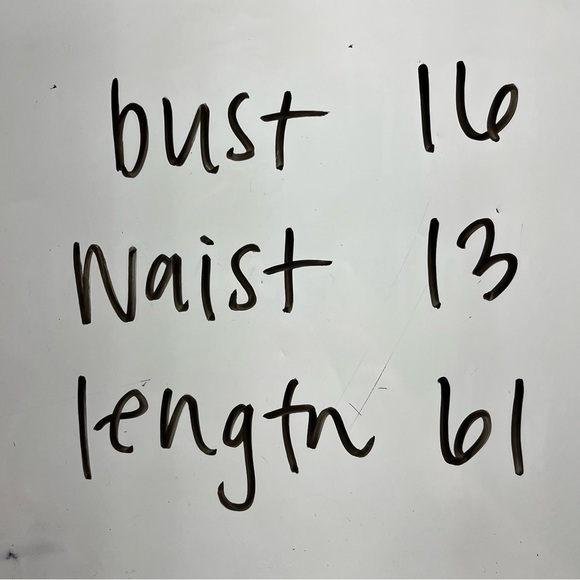 bust 16
Waist 13
length 61